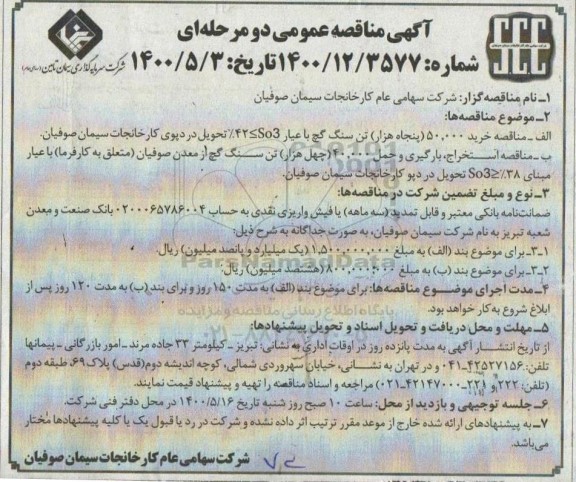 آگهی مناقصه عمومی دو مرحله‌ای
شماره: ۱۴۰۰/۱۲/۳۵۷۷ تاریخ: ۱۴۰۰/۵/۳
SCC
شرکت سرمایه‌گذاری سیمان تأمین (سهامی عام)
۱ـ نام مناقصه‌گزار: شرکت سهامی عام کارخانجات سیمان صوفیان
۲ـ موضوع مناقصه‌ها:
الف ـ مناقصه خرید ۵۰,۰۰۰ (پنجاه هزار) تن سنگ گچ با عیار So3≥۴۲٪ تحویل در دپوی کارخانجات سیمان صوفیان.
ب ـ مناقصه استخراج، بارگیری و حمل ۴۰,۰۰۰ (چهل هزار) تن سنگ گچ از معدن صوفیان (متعلق به کارفرما) با عیار
مبنای So3≥۳۸٪ تحویل در دپو کارخانجات سیمان صوفیان.
۳ـ نوع و مبلغ تضمین شرکت در مناقصه‌ها:
ضمانت‌نامه بانکی معتبر و قابل تمدید (سه ماهه) یا فیش واریزی نقدی به حساب ۰۲۰۰۰۶۵۷۸۶۰۰۴ بانک صنعت و معدن
شعبه تبریز به نام شرکت سیمان صوفیان، به صورت جداگانه به شرح ذیل:
۳ـ۱ـ برای موضوع بند (الف) به مبلغ ۱,۵۰۰,۰۰۰,۰۰۰ (یک میلیارد و پانصد میلیون) ریال.
۳ـ۲ـ برای موضوع بند (ب) به مبلغ ۸۰۰,۰۰۰,۰۰۰ (هشتصد میلیون) ریال.
ParsNamadData
۴ـ مدت اجرای موضوع مناقصه‌ها: برای موضوع بند (الف) به مدت ۱۵۰ روز و برای بند (ب) به مدت ۱۲۰ روز پس از
ابلاغ شروع به کار خواهد بود.
پایگاه اطلاع رسانی مناقصه و مزایده
۵ـ مهلت و محل دریافت و تحویل اسناد و تحویل پیشنهادها:
از تاریخ انتشار آگهی به مدت پانزده روز در اوقات اداری به نشانی: تبریز ـ کیلومتر ۳۳ جاده مرند ـ امور بازرگانی ـ پیمانها
تلفن: ۴۲۵۲۷۱۵۶ـ۰۴۱ و در تهران به نشانی، خیابان سهروردی شمالی، کوچه اندیشه دوم (قدس) پلاک ۶۹، طبقه دوم
(تلفن: ۲۲۲ و ۲۲۱ـ۴۲۱۴۷۰۰۰ـ۰۲۱) مراجعه و اسناد مناقصه را تهیه و پیشنهاد قیمت نمایند.
۶ـ جلسه توجیهی و بازدید از محل: ساعت ۱۰ صبح روز شنبه تاریخ ۱۴۰۰/۵/۱۶ در محل دفتر فنی شرکت.
۷ـ به پیشنهادهای ارائه شده خارج از موعد مقرر ترتیب اثر داده نشده و شرکت در رد یا قبول یک یا کلیه پیشنهادها مختار
می‌باشد.
شرکت سهامی عام کارخانجات سیمان صوفیان